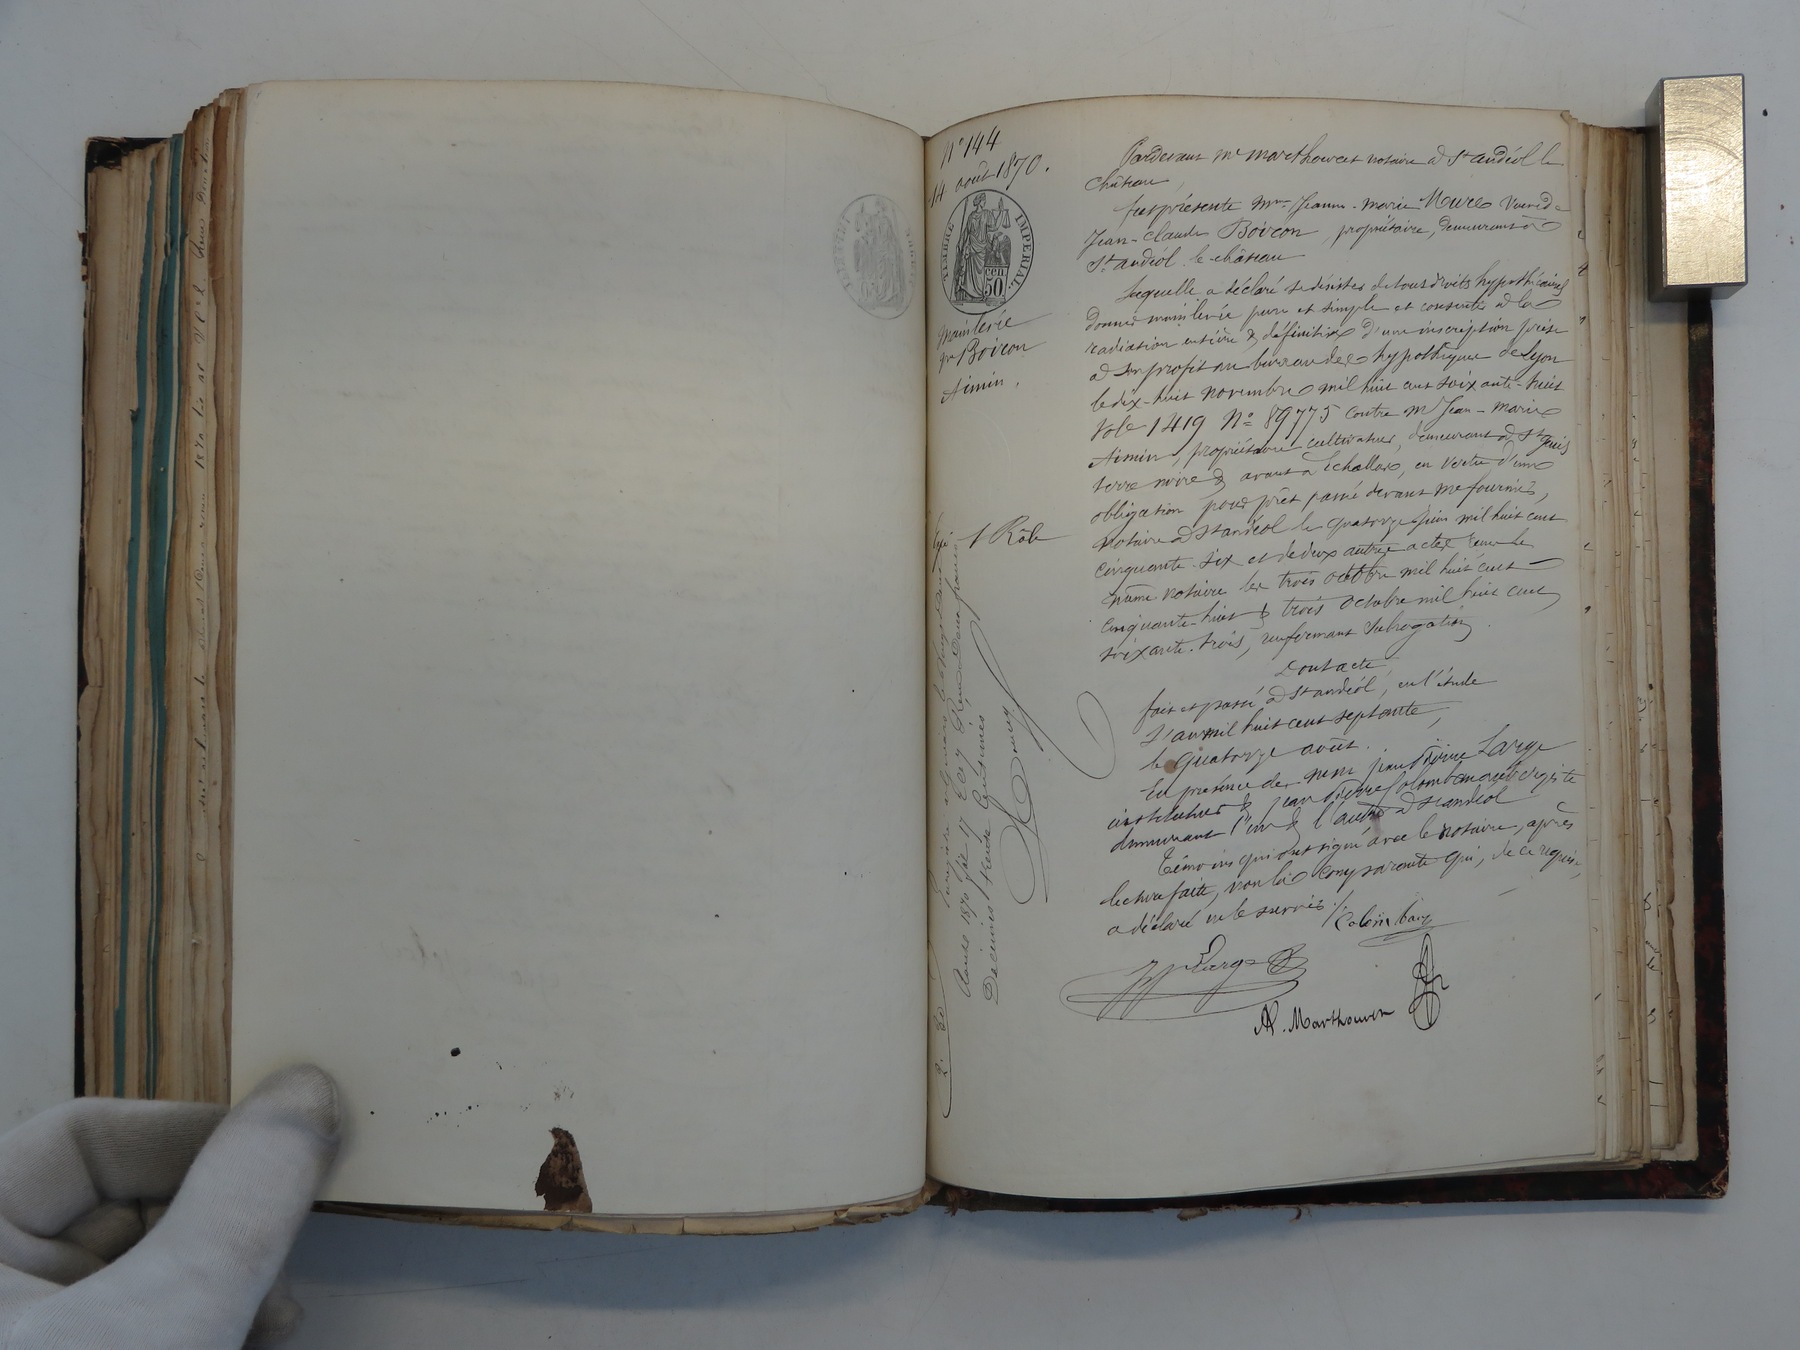 N° 144
14 août 1870.
TIMBRE IMPERIAL
50 cen
Mainlevée
par Boiron
Nimin.
1 Rôle
Pardevant Me Marthouret notaire à St andéol le
château,
fut présente Mme Jeanne-Marie Mure veuve de
Jean-Claude Boiron, propriétaire, demeurant à
St andéol-le-château
Laquelle a déclaré se désister de tous droits hypothécaires
donner mainlevée pure et simple et consentir à la
radiation entière & définitive d'une inscription prise
à son profit au bureau des hypothèques de Lyon
le dix-huit novembre mil huit cent soixante-huit
vol. 1419 N° 89775 contre Mr Jean-Marie
Nimin, propriétaire cultivateur, demeurant à St
terre noire & avant à Echallas, en vertu d'une
obligation pour prêt passé devant Me fournier,
notaire à St andéol le quatorze juin mil huit cent
cinquante-six et de deux autres actes reçus le
même notaire les trois octobre mil huit cent
cinquante-huit & trois octobre mil huit cent
soixante-trois, renfermant subrogation.
Dont acte
fait et passé à St andéol, en l'étude
L'an mil huit cent septante,
le quatorze août.
En présence de MM. jean pierre Large
instituteur & jean pierre Colomban aubergiste
demeurant l'un & l'autre à St andéol
Témoins qui ont signé avec le notaire, après
lecture faite, non la comparante qui, de ce requise,
a déclaré ne le savoir./.
Colomban
JP Large
A. Marthouret
Août 1870 f° 17 Reçu deux francs
Décimes trente centimes
2. 30